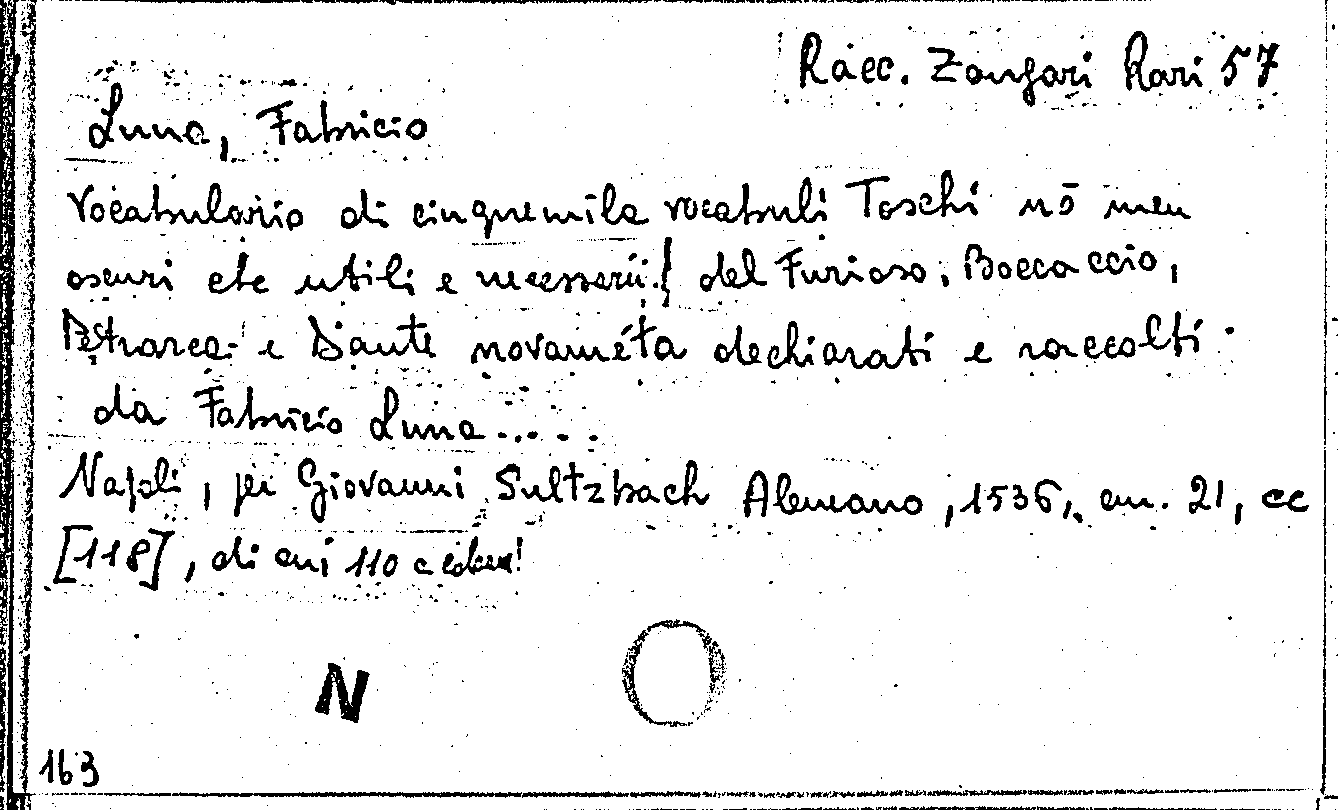 Racc. Zangari Rari 57
Luna, Fabricio
Vocabulario di cinquemila vocabuli Toschi nō men
oscuri che utili e necessarii del Furioso, Boccaccio,
Petrarca e Dante novaméta dechiarati e raccolti
da Fabricio Luna.....
Napoli, per Giovanni Sultzbach Alemano, 1536, cm. 21, cc
[118], di cui 110 a
N
163